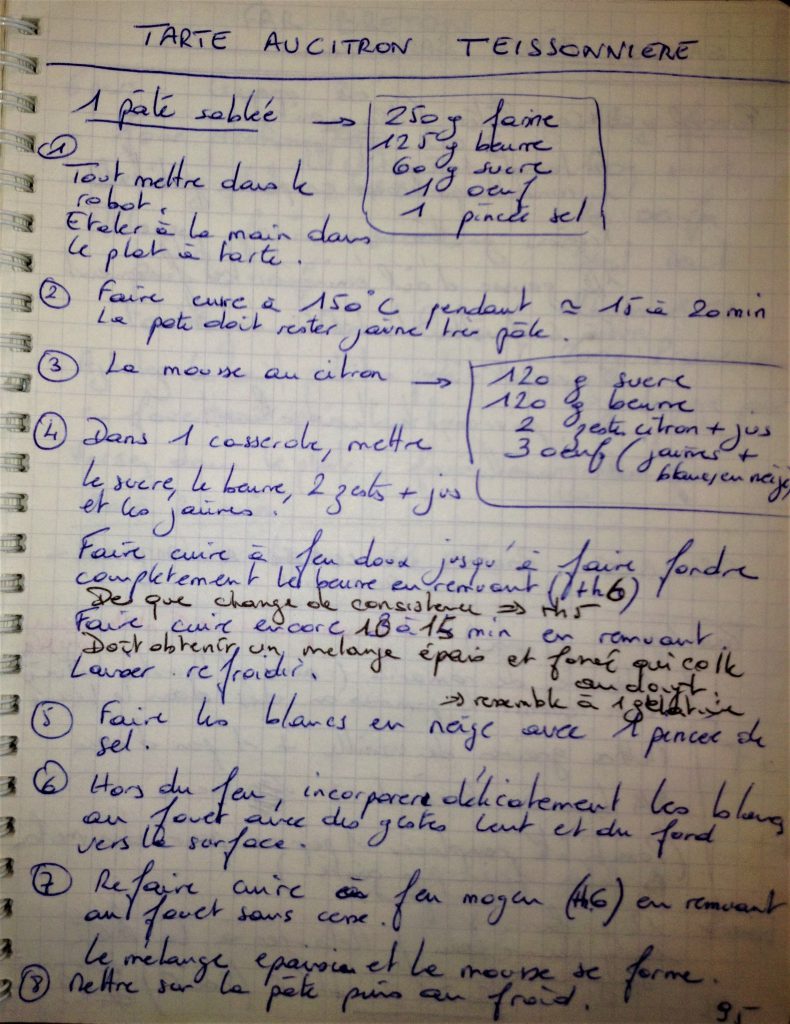 TARTE AU CITRON TEISSONNIERE
1 pâte sablée →
250 g farine
125 g beurre
60 g sucre
1 oeuf
1 pincée sel
①
Tout mettre dans le
robot.
Etaler à la main dans
le plat à tarte.
② Faire cuire à 150°C pendant ≃ 15 à 20 min
La pate doit rester jaune très pâle.
③ La mousse au citron →
120 g sucre
120 g beurre
2 zestes citron + jus
3 oeufs (jaunes +
blancs en neige)
④ Dans 1 casserole, mettre
le sucre, le beurre, 2 zests + jus
et les jaunes.
Faire cuire à feu doux jusqu'à faire fondre
completement le beurre en remuant (th6)
Des que change de consistence ⇒ th5
Faire cuire encore à 15 min en remuant
Doit obtenir un mélange épais et foncé qui colle
au doigt.
Laisser refroidir.
⇒ resemble à 1 gélatine
⑤ Faire les blancs en neige avec 1 pincée de
sel.
⑥ Hors du feu, incorporer délicatement les blancs
au fouet avec des gestes lent et du fond
vers la surface.
⑦ Refaire cuire à feu moyen (th6) en remuant
au fouet sans cesse.
Le mélange epaissie et la mousse se forme.
⑧ Mettre sur la pâte puis au froid.
95